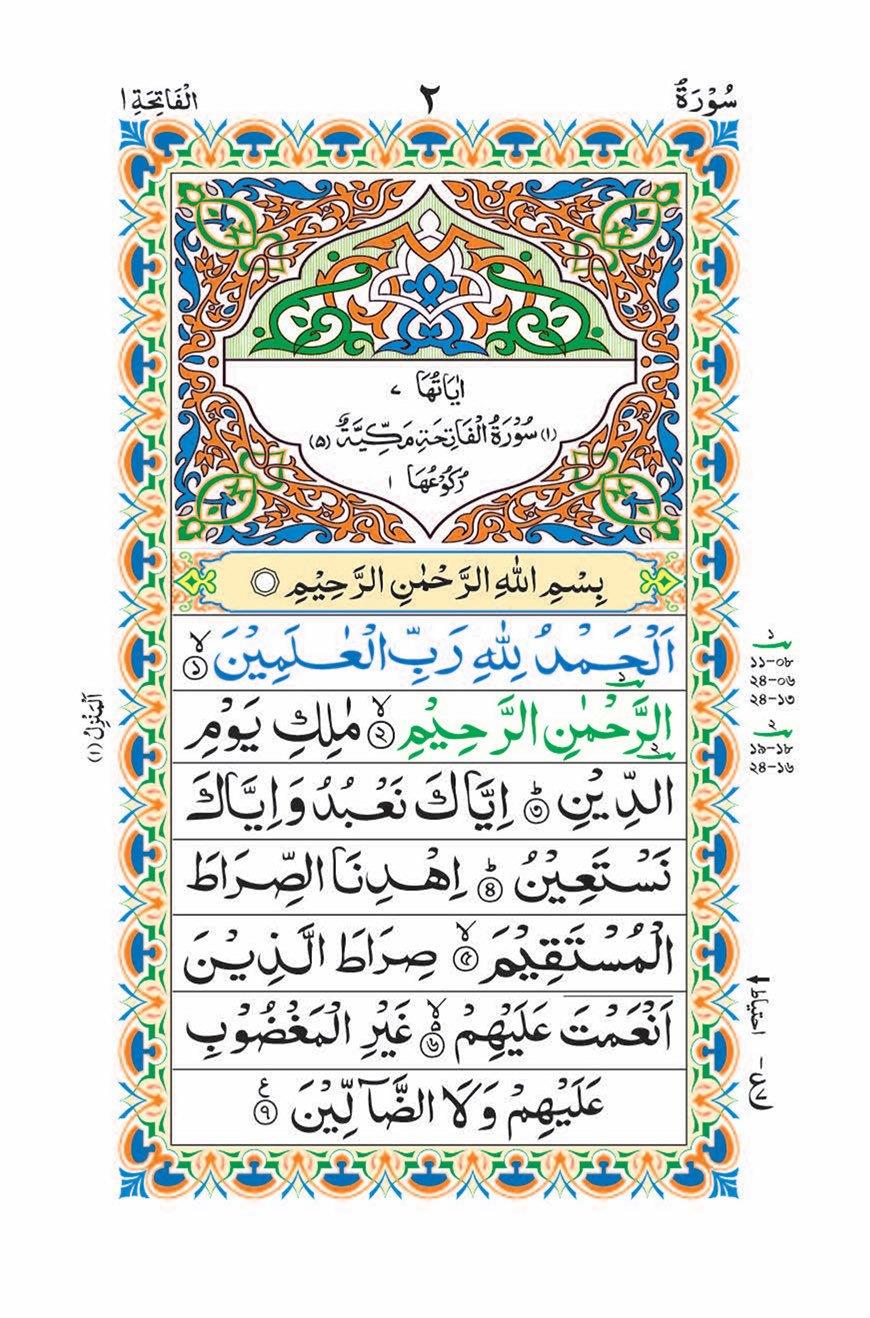 سُوْرَةٌ ٢ اَلْفَاتِحَةِ ١
اٰيَاتُهَا ٧
(١) سُوْرَةُ الْفَاتِحَةِ مَكِّيَّةٌ (٥)
رُكُوْعُهَا ١
بِسْمِ اللهِ الرَّحْمٰنِ الرَّحِيْمِ
اَلْحَمْدُ لِلّٰهِ رَبِّ الْعٰلَمِيْنَ ۙ ١
الرَّحْمٰنِ الرَّحِيْمِ ۙ ٢ مٰلِكِ يَوْمِ
الدِّيْنِ ؕ ٣ اِيَّاكَ نَعْبُدُ وَاِيَّاكَ
نَسْتَعِيْنُ ؕ ٤ اِهْدِنَا الصِّرَاطَ
الْمُسْتَقِيْمَ ۙ ٥ صِرَاطَ الَّذِيْنَ
اَنْعَمْتَ عَلَيْهِمْ ۙ ٦ غَيْرِ الْمَغْضُوْبِ
عَلَيْهِمْ وَلَا الضَّآلِّيْنَ
اَلْمَنْزِلُ (١)
احتياط